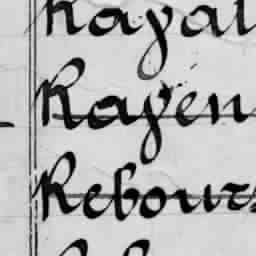 Rayal
Rayen
Rebours